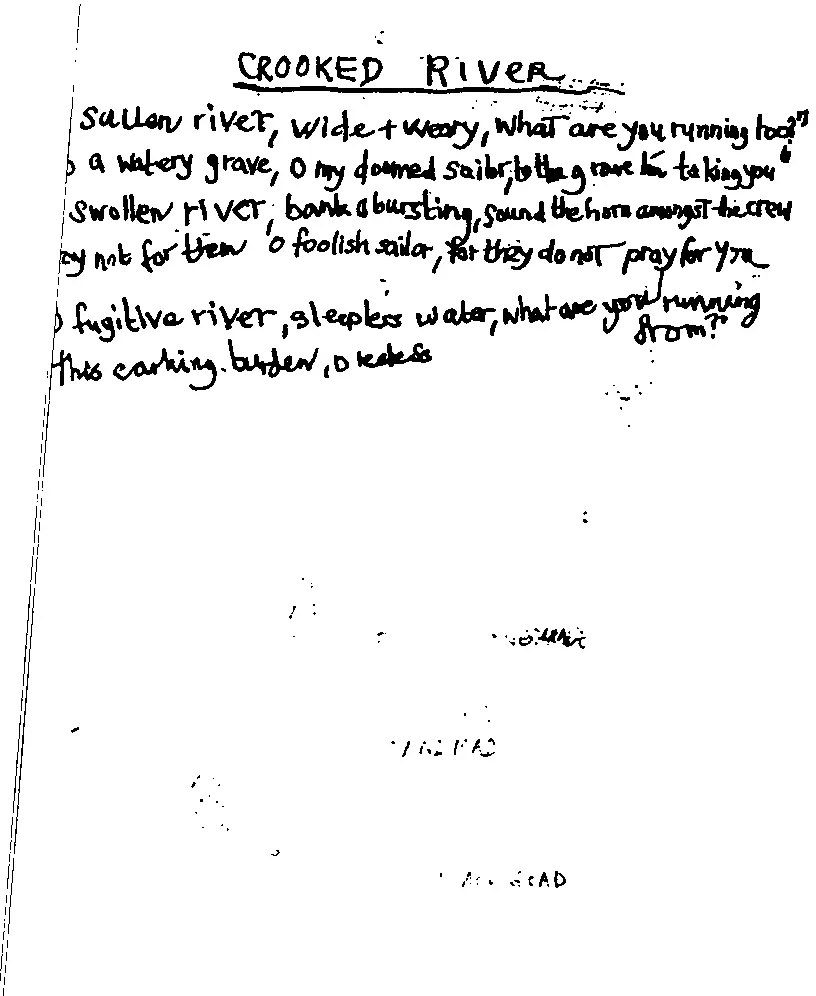 CROOKED RIVER
Sullen river, wide + weary, what are you running too?"
a watery grave, O my doomed sailor, to the grave I'm taking you"
Swollen river, banks a bursting, sound the horn amongst the crew
not for them 'o foolish sailor, for they do not pray for you
fugitive river, sleepless water, what are you running
from?"
this carking burden, o